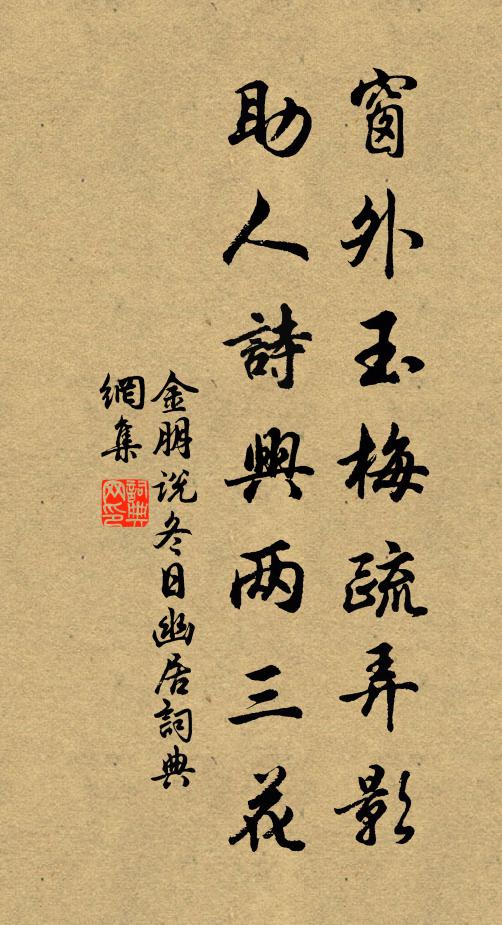 窗外玉梅疏弄影
助人詩興两三花
金朋説冬日幽居詞典
網集
詞典
网印